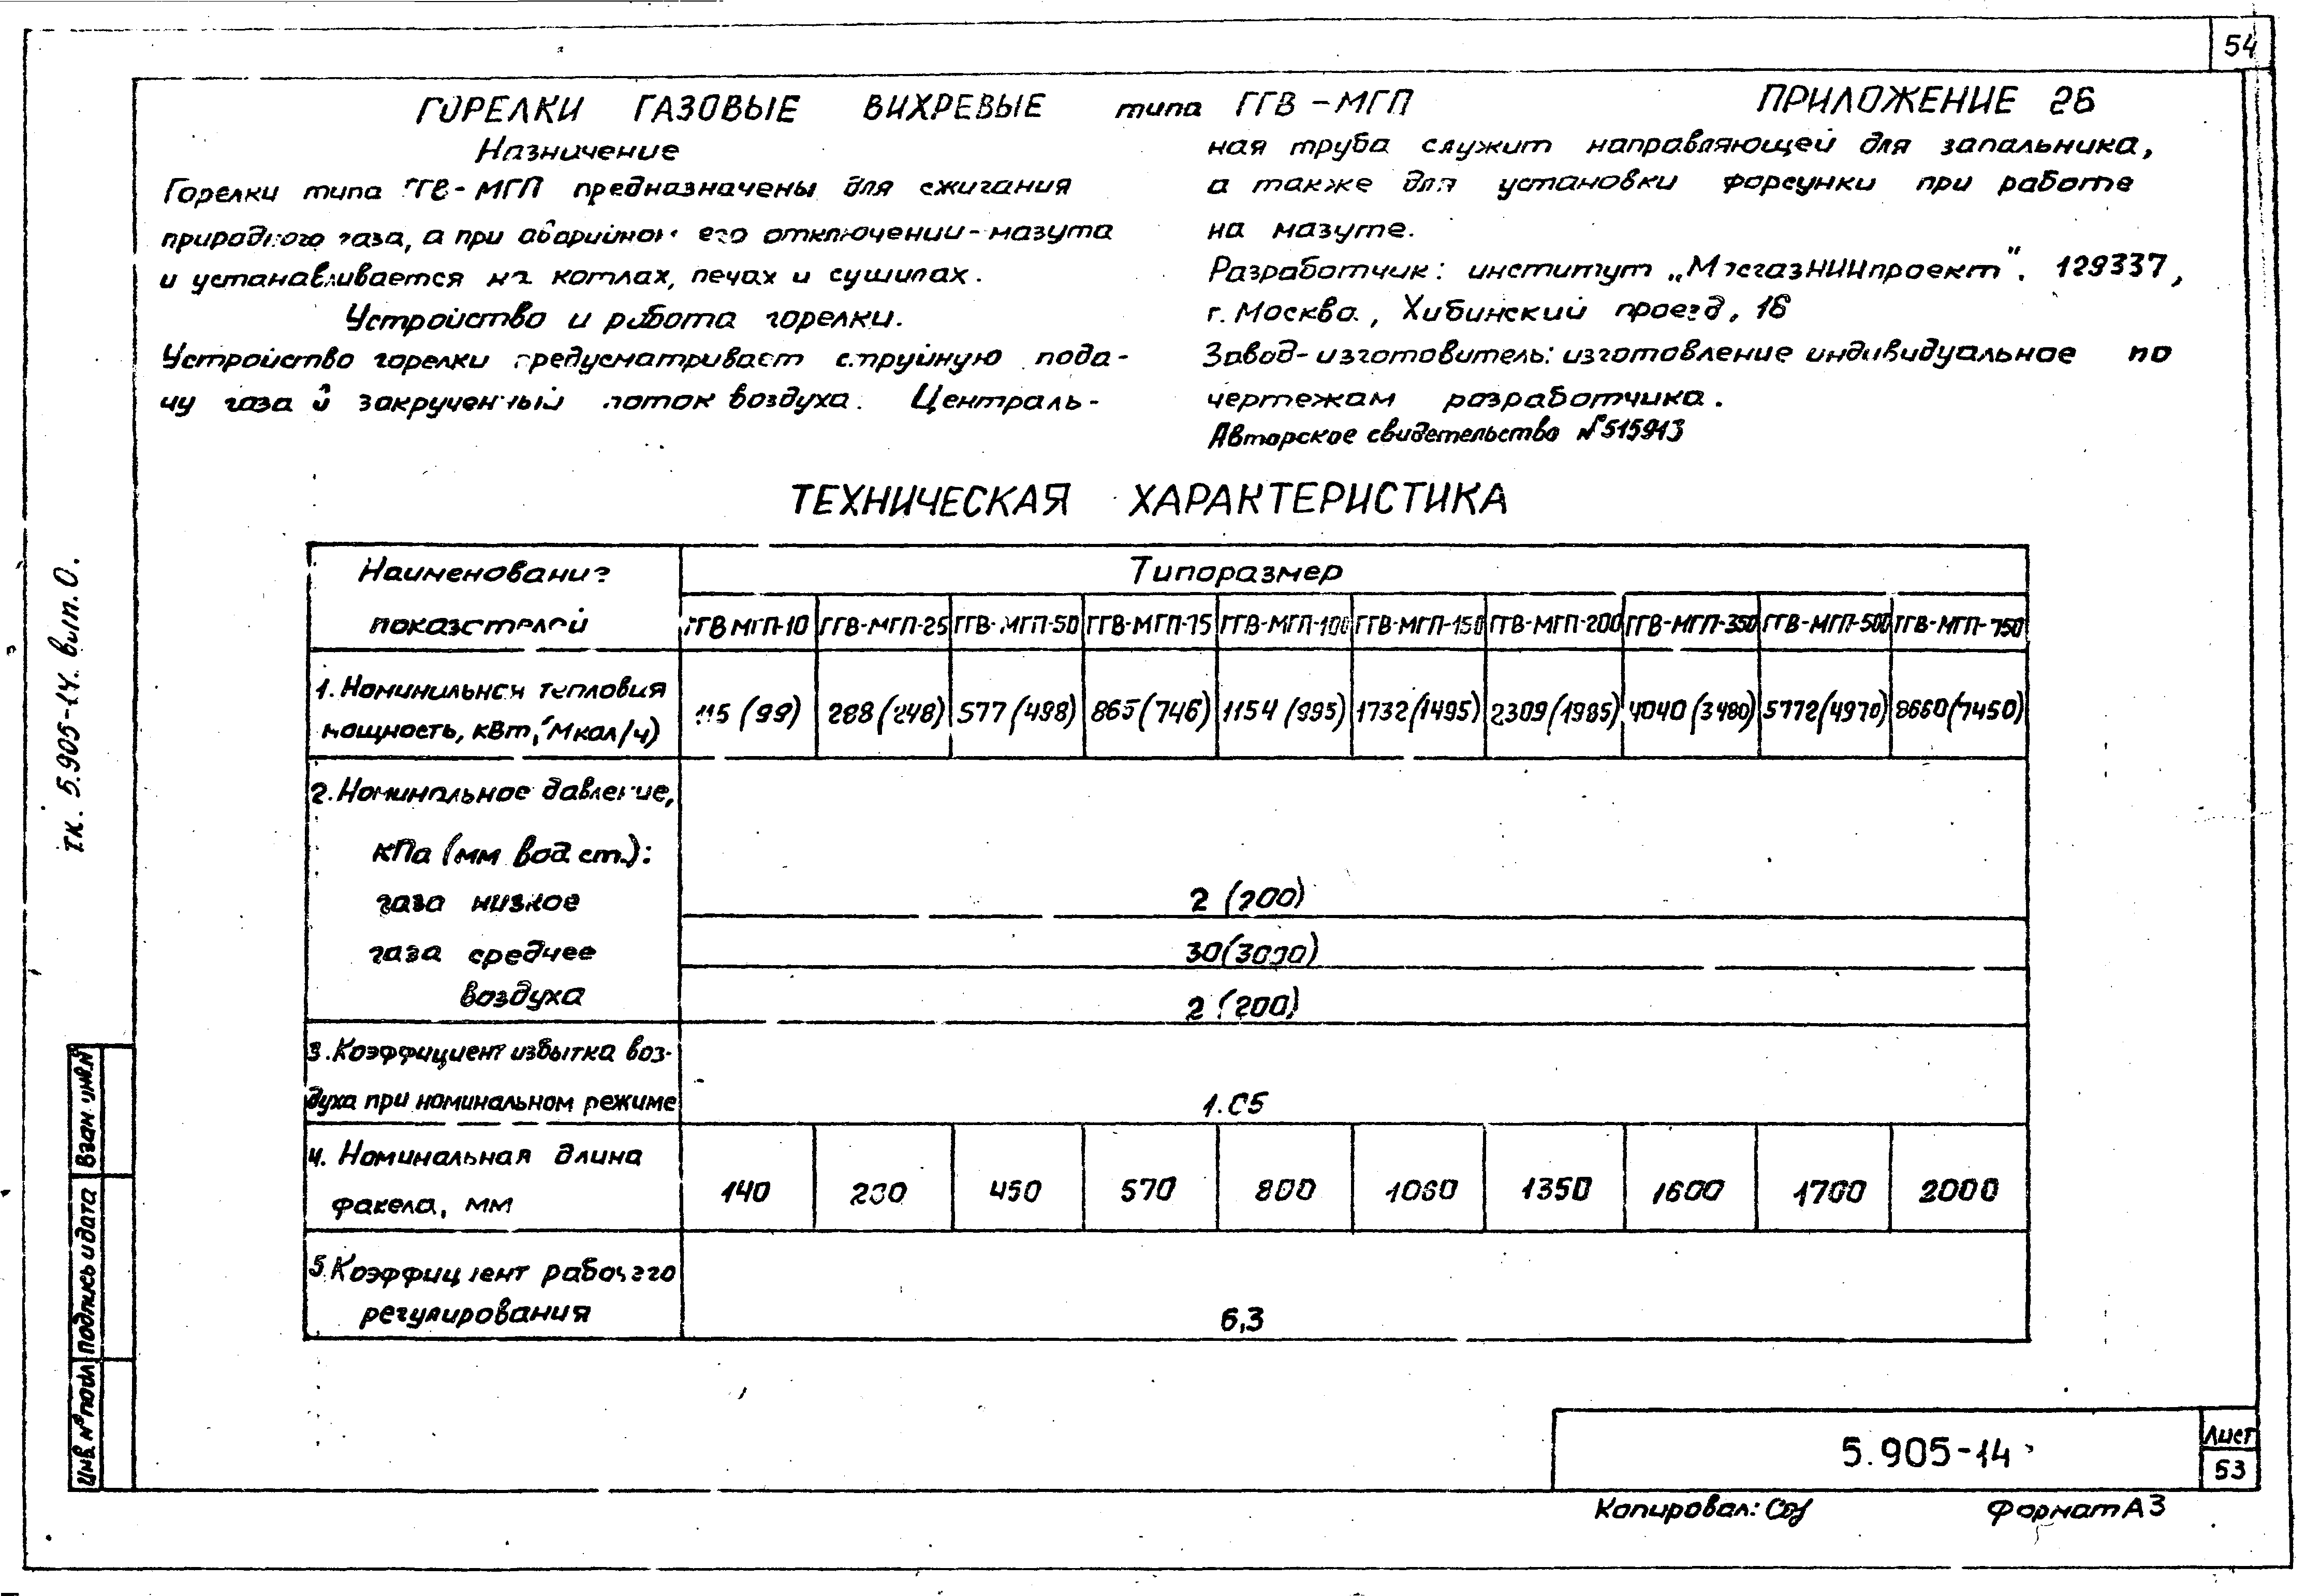 54
ГОРЕЛКИ ГАЗОВЫЕ ВИХРЕВЫЕ типа ГГВ-МГП
ПРИЛОЖЕНИЕ 26
Назначение
Горелки типа ГГВ-МГП предназначены для сжигания
природного газа, а при аварийном его отключении-мазута
и устанавливается на котлах, печах и сушилах.
Устройство и работа горелки.
Устройство горелки предусматривает струйную пода-
чу газа в закрученный поток воздуха. Централь-
ная труба служит направляющей для запальника,
а также для установки форсунки при работе
на мазуте.
Разработчик: институт „МосгазНИИпроект". 129337,
г. Москва, Хибинский проезд, 16
Завод-изготовитель: изготовление индивидуальное по
чертежам разработчика.
Авторское свидетельство №515913
ТЕХНИЧЕСКАЯ ХАРАКТЕРИСТИКА
Наименование показателей
Типоразмер
ГГВ МГП-10 ГГВ-МГП-25 ГГВ-МГП-50 ГГВ-МГП-75 ГГВ-МГП-100 ГГВ-МГП-150 ГГВ-МГП-200 ГГВ-МГП-350 ГГВ-МГП-500 ГГВ-МГП-750
1. Номинальная тепловая
мощность, кВт, (Мкал/ч)
115 (99) 288 (248) 577 (498) 865 (746) 1154 (995) 1732 (1495) 2309 (1985) 4040 (3480) 5772 (4970) 8660 (7450)
2. Номинальное давление,
кПа (мм вод ст.):
газа низкое 2 (200)
газа среднее 30 (3000)
воздуха 2 (200)
3. Коэффициент избытка воз-
духа при номинальном режиме 1.05
4. Номинальная длина
факела, мм
140 450 570 800 1060 1350 1600 1700 2000
5. Коэффициент рабочего
регулирования 6,3
т.к. 5.905-14. вып. 0.
Взам. инв. №
Подпись и дата
Инв. № подл
5.905-14
Лист
53
Копировал:
Формат А3